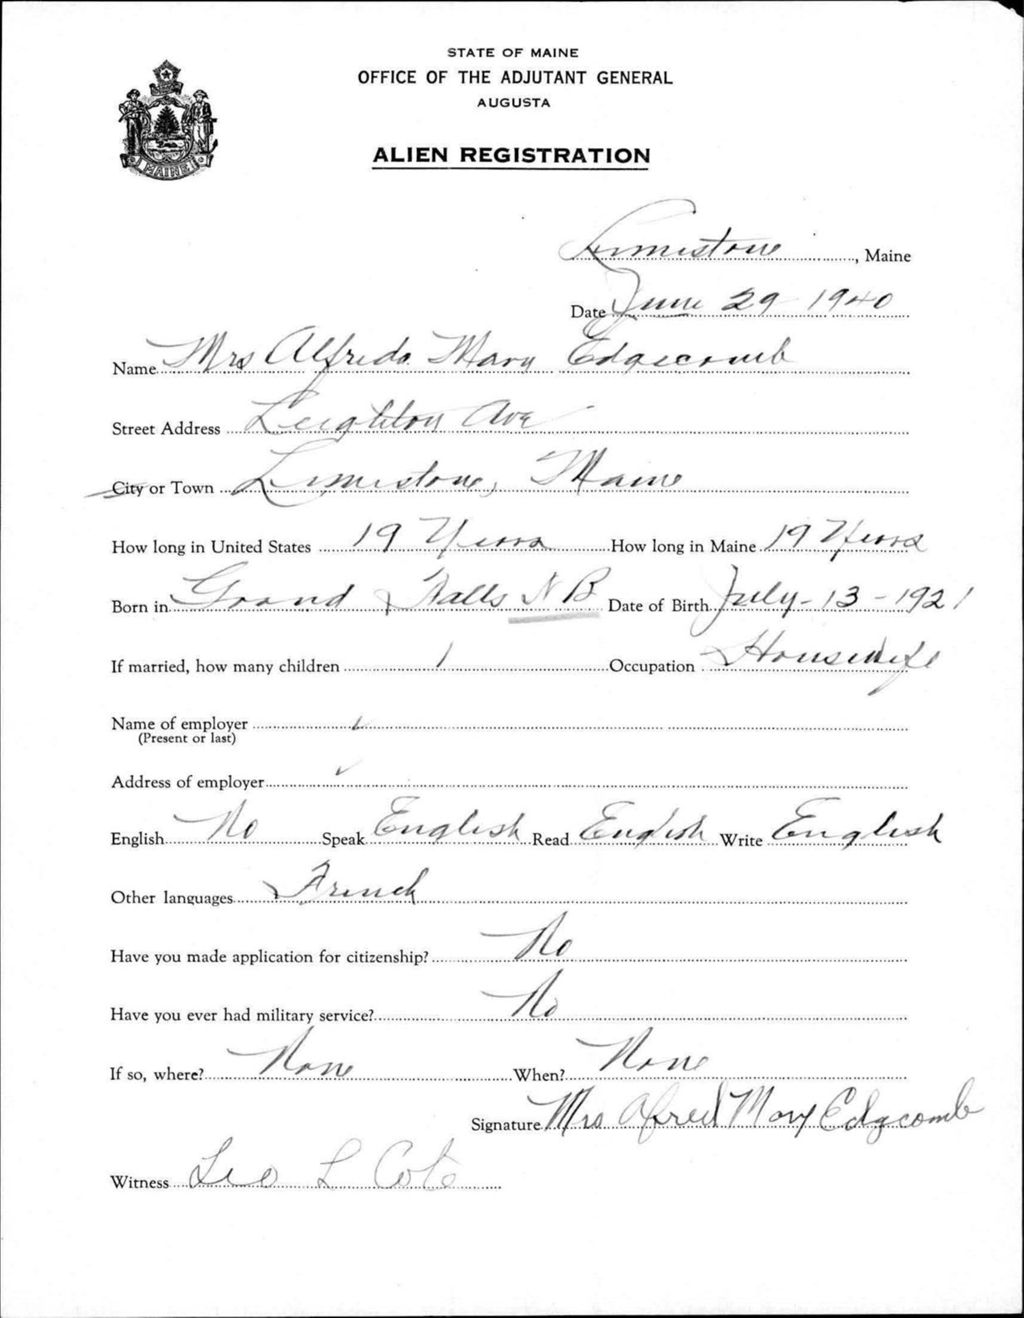 STATE OF MAINE
OFFICE OF THE ADJUTANT GENERAL
AUGUSTA
ALIEN REGISTRATION
MAINE
Limestone, Maine
Date June 29 1940
Name Mrs Alfreda Mary Edgecomb
Street Address Leighton Ave
City or Town Limestone, Maine
How long in United States 19 Years How long in Maine 19 Years
Born in Grand Falls N B Date of Birth July-13-1921
If married, how many children 1 Occupation Housewife
Name of employer
(Present or last)
Address of employer
English No Speak English Read English Write English
Other languages French
Have you made application for citizenship? No
Have you ever had military service? No
If so, where? None When? None
Signature Mrs Alfred Mary Edgcomb
Witness Leo L Cote